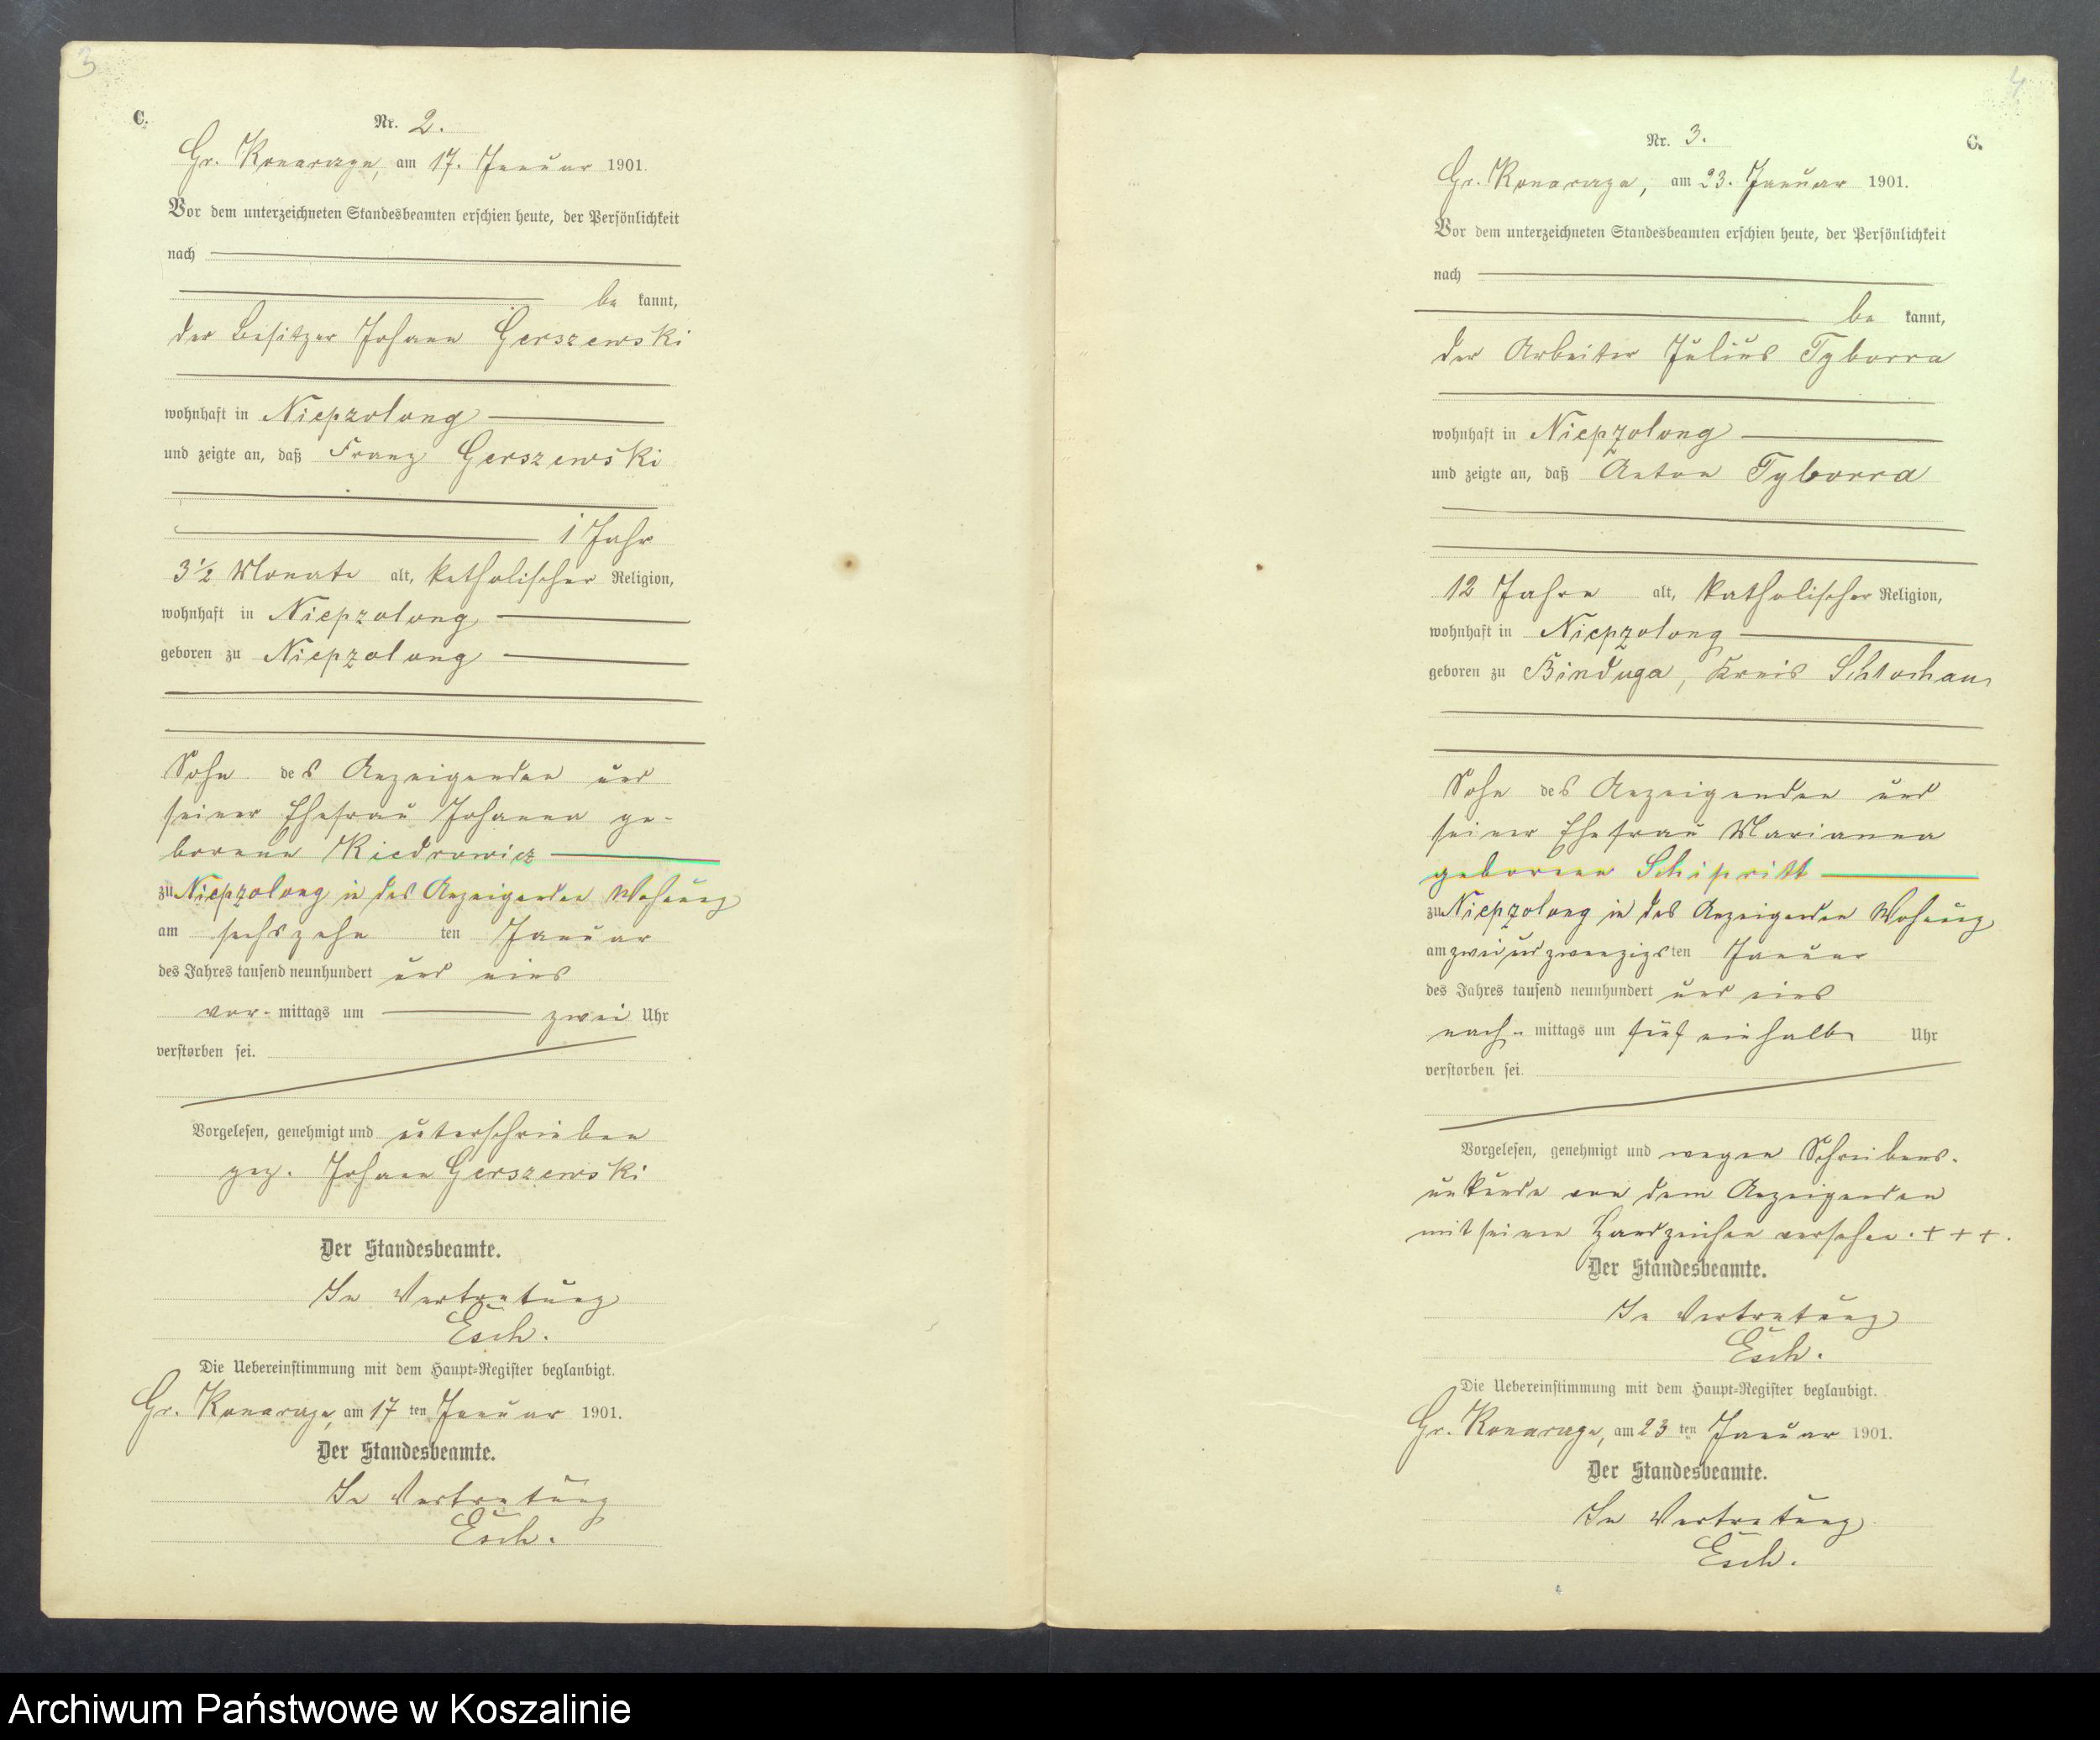 3
C.
Nr. 2.
Gr. Konarzyn, am 17. Januar 1901.
Vor dem unterzeichneten Standesbeamten erschien heute, der Persönlichkeit
nach
be kannt,
der Besitzer Johann Gerszewski
wohnhaft in Niepzolong
und zeigte an, daß Franz Gerszewski
1 Jahr
3 1/2 Monate alt, katholischer Religion,
wohnhaft in Niepzolong
geboren zu Niepzolong
Sohn des Anzeigenden und
seiner Ehefrau Johanna ge-
borene Kiedrowicz
zu Niepzolong in des Anzeigenden Wohnung
am sechszehn ten Januar
des Jahres tausend neunhundert und eins
vor- mittags um zwei Uhr
verstorben sei.
Vorgelesen, genehmigt und unterschrieben
gez. Johann Gerszewski
Der Standesbeamte.
In Vertretung
Esch.
Die Uebereinstimmung mit dem Haupt-Register beglaubigt.
Gr. Konarzyn, am 17 ten Januar 1901.
Der Standesbeamte.
In Vertretung
Esch.
4
Nr. 3.
C.
Gr. Konarzyn, am 23. Januar 1901.
Vor dem unterzeichneten Standesbeamten erschien heute, der Persönlichkeit
nach
be kannt,
der Arbeiter Julius Tyborra
wohnhaft in Niepzolong
und zeigte an, daß Anton Tyborra
12 Jahre alt, katholischer Religion,
wohnhaft in Niepzolong
geboren zu Binduga, Kreis Schlochau
Sohn des Anzeigenden und
seiner Ehefrau Marianna
geborenen Schipritt
zu Niepzolong in des Anzeigenden Wohnung
am zwei und zwanzigs ten Januar
des Jahres tausend neunhundert und eins
nach- mittags um fünf einhalb Uhr
verstorben sei.
Vorgelesen, genehmigt und wegen Schreibens-
unkunde von dem Anzeigenden
mit seinen Handzeichen versehen. + + +.
Der Standesbeamte.
In Vertretung
Esch.
Die Uebereinstimmung mit dem Haupt-Register beglaubigt.
Gr. Konarzyn, am 23 ten Januar 1901.
Der Standesbeamte.
In Vertretung
Esch.
Archiwum Państwowe w Koszalinie